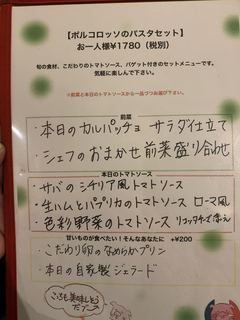 【ポルコロッソのパスタセット】
お一人様¥1780（税別）
旬の食材、こだわりのトマトソース、バゲット付きのセットメニューです。
気軽に楽しんで下さい。
※前菜と本日のトマトソースから一品づつお選び下さい。
前菜
・本日のカルパッチョ サラダ仕立て
・シェフのおまかせ前菜盛り合わせ
本日のトマトソース
・サバのシチリア風トマトソース
・生ハムとパプリカのトマトソース ローマ風
・色彩野菜のトマトソース リコッタチーズ添え
甘いものが食べたい！そんなあなたに +¥200
・こだわり卵のなめらかプリン
・本日の自家製ジェラード
こっちも美味しそう